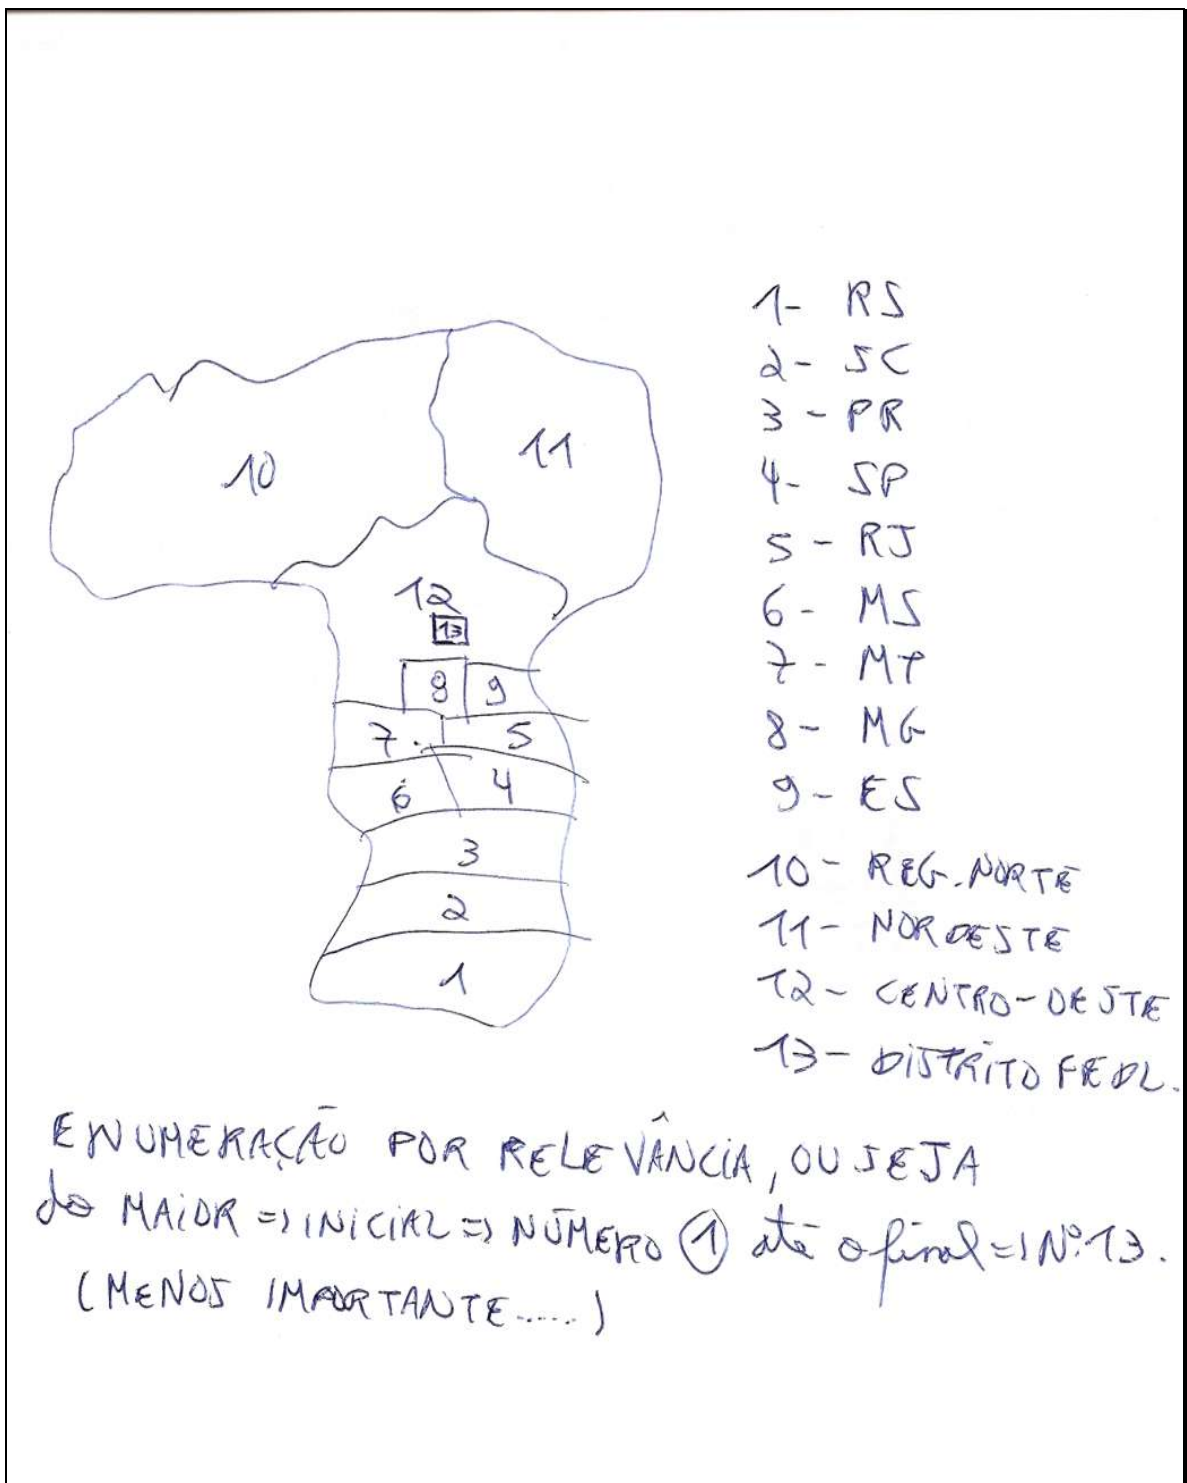 10
11
12
13
8
9
7.
5
6
4
3
2
1
1- RS
2- SC
3- PR
4- SP
5- RJ
6- MS
7- MT
8- MG
9- ES
10- REG. NORTE
11- NORDESTE
12- CENTRO-OESTE
13- DISTRITO FEDL.
ENUMERAÇÃO POR RELEVÂNCIA, OU SEJA
do MAIOR => INICIAL => NÚMERO 1 até o final => Nº 13.
(MENOS IMPORTANTE.....)